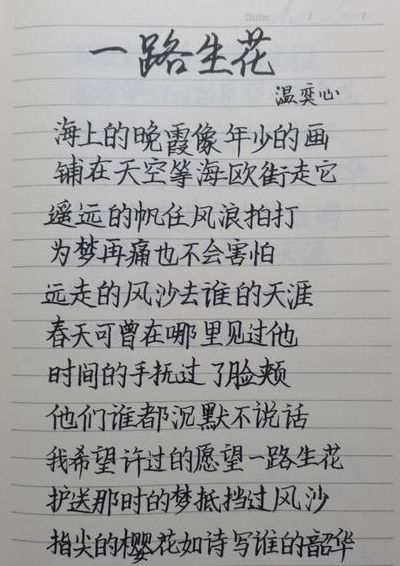 Date: / /
一路生花
温奕心
海上的晚霞像年少的画
铺在天空等海欧街走它
遥远的帆任风浪拍打
为梦再痛也不会害怕
远走的风沙去谁的天涯
春天可曾在哪里见过他
时间的手抚过了脸颊
他们谁都沉默不说话
我希望许过的愿望一路生花
护送那时的梦抵挡过风沙
指尖的樱花如诗写谁的韶华